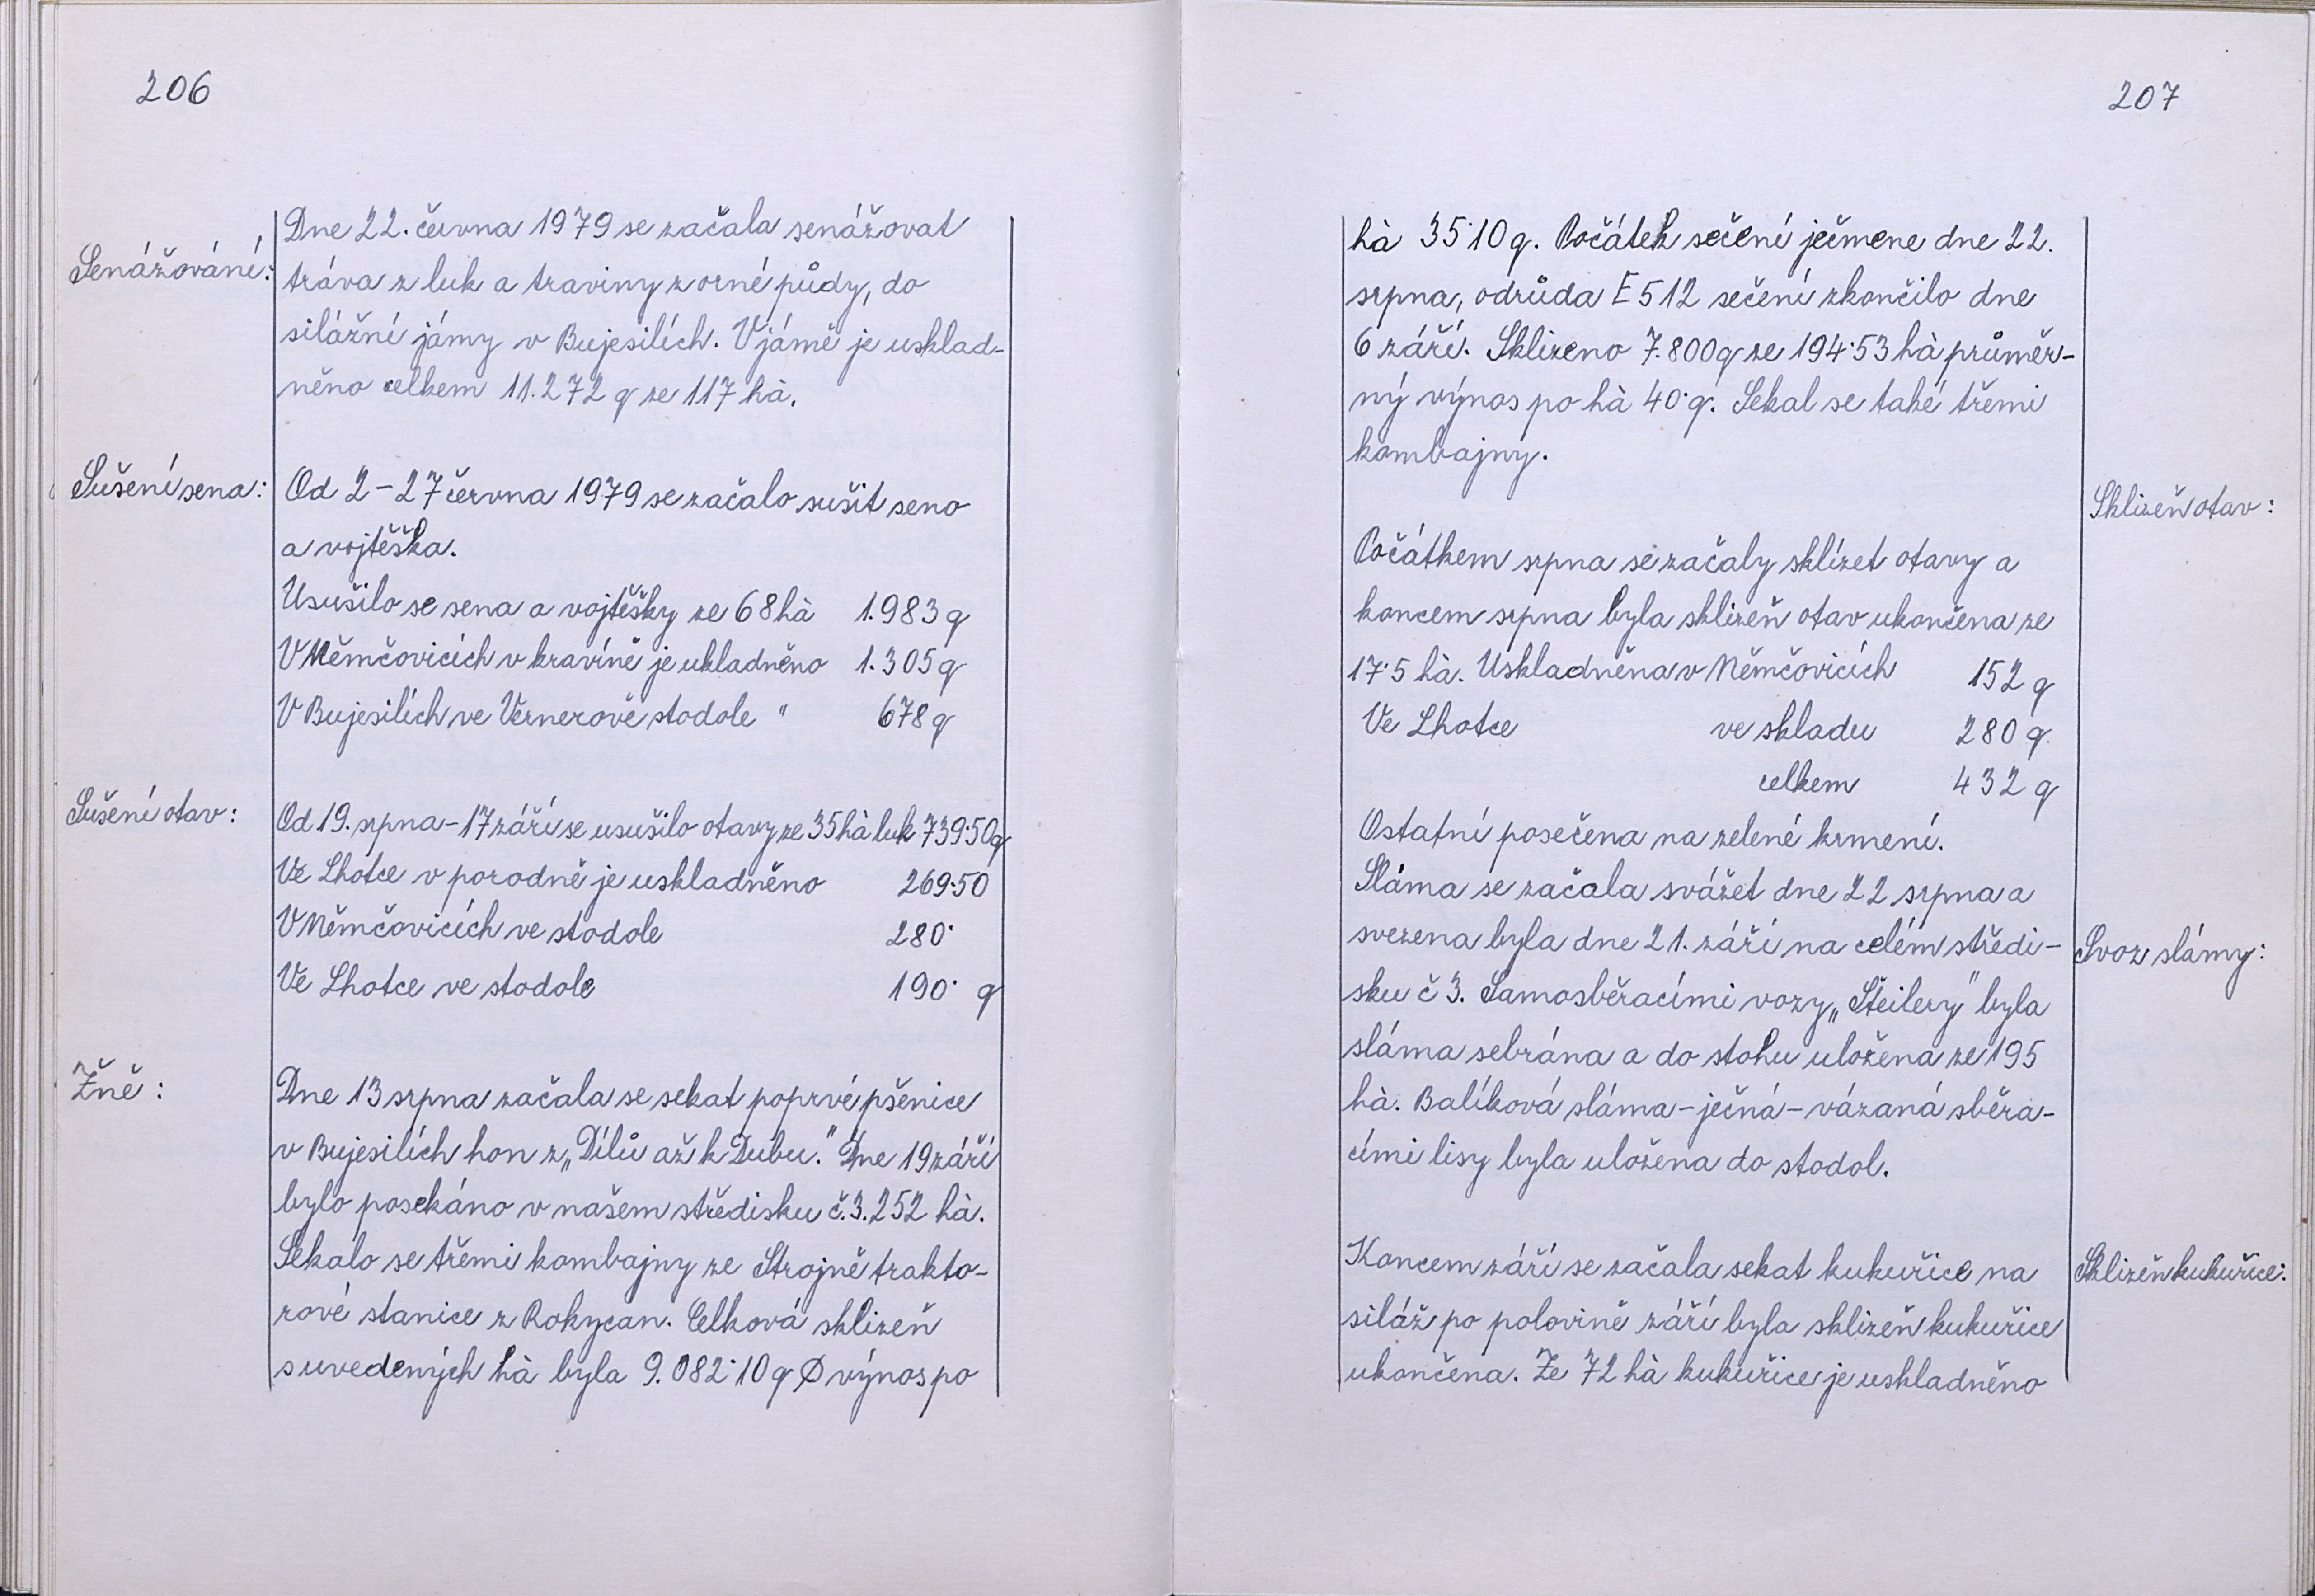 206
Senážování:
Dne 22. června 1979 se začala senážovat
tráva z luk a traviny z orné půdy, do
silážní jámy v Bujesilích. V jámě je usklad-
něno celkem 11.272 q ze 117 hà.
Sušení sena:
Od 2 - 27 června 1979 se začalo sušit seno
a vojtěška.
Usušilo se sena a vojtěšky ze 68 hà 1.983 q
V Němčovicích v kravíně je ukladněno 1.305 q
V Bujesilích ve Vernerově stodole " 678 q
Sušení otav:
Od 19. srpna - 17 září se usušilo otavy ze 35 hà luk 739·50 q
Ve Lhotce v porodně je uskladněno 269·50
V Němčovicích ve stodole 280·
Ve Lhotce ve stodole 190· q
Žně:
Dne 13 srpna začala se sekat poprvé pšenice
v Bujesilích hon z „Dílů až k Dubu." Dne 19 září
bylo posekáno v našem středisku č. 3. 252 hà.
Sekalo se třemi kombajny ze Strojně trakto-
rové stanice z Rokycan. Celková sklizeň
s uvedených hà byla 9.082·10 q Ø výnos po
207
hà 35·10 q. Počátek sečení ječmene dne 22.
srpna, odrůda E 512 sečení zkončilo dne
6 září. Sklizeno 7.800 q ze 194·53 hà průměr-
ný výnos po hà 40· q. Sekal se také třemi
kombajny.
Sklizeň otav:
Počátkem srpna se začaly sklízet otavy a
koncem srpna byla sklizeň otav ukončena ze
17·5 hà. Uskladněna v Němčovicích 152 q
Ve Lhotce ve skladu 280 q.
celkem 432 q
Ostatní posečena na zelené krmení.
Sláma se začala svážet dne 22 srpna a
svezena byla dne 21. září na celém středi-
Svoz slámy:
sku č 3. Samosběracími vozy „Šteilery" byla
sláma sebrána a do stohu uložena ze 195
hà. Balíková sláma - ječná - vázaná sběra-
cími lisy byla uložena do stodol.
Koncem září se začala sekat kukuřice na
Sklizeň kukuřice:
siláž po polovině září byla sklizeň kukuřice
ukončena. Ze 72 hà kukuřice je uskladněno